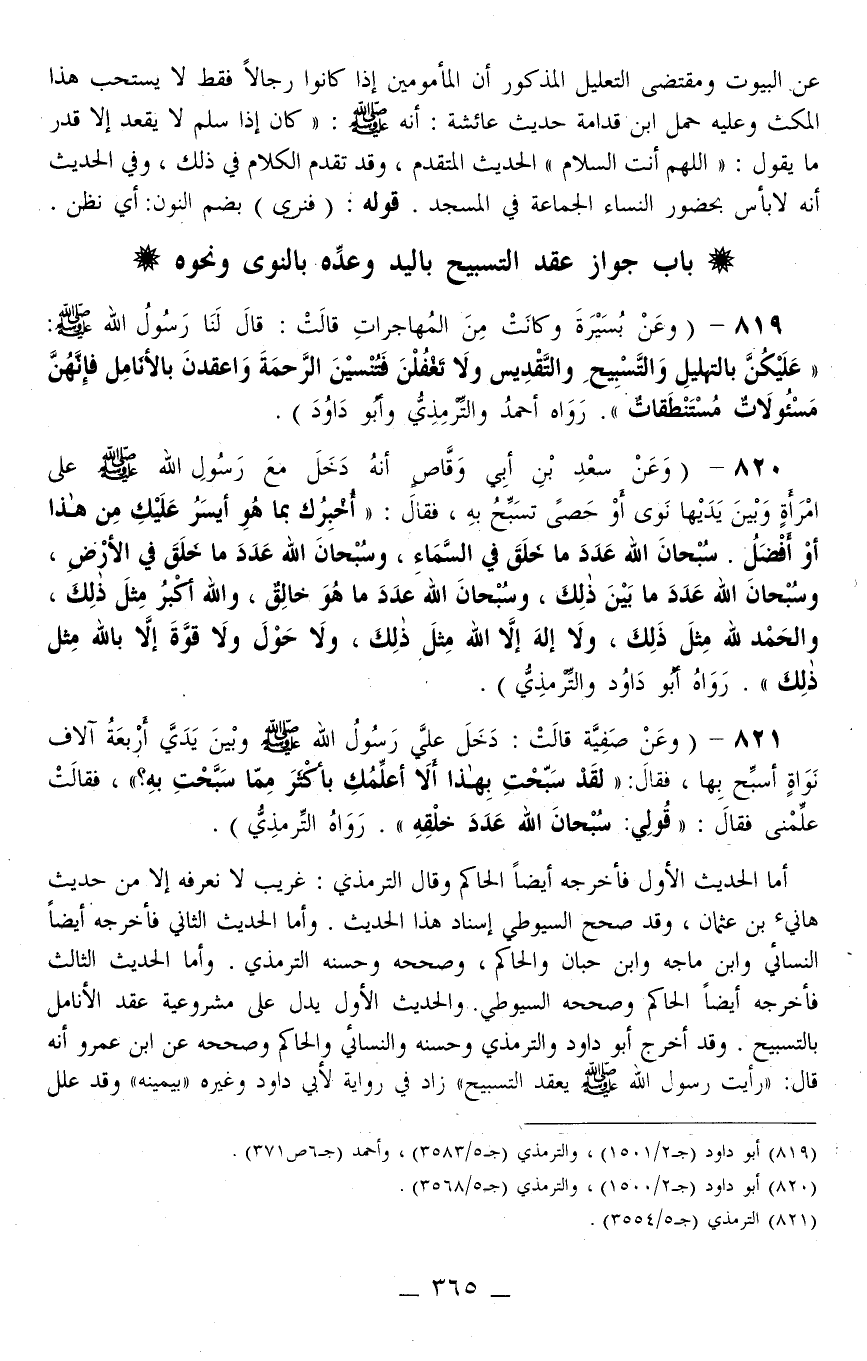 عن البيوت ومقتضى التعليل المذكور أن المأمومين إذا كانوا رجالاً فقط لا يستحب هذا
المكث وعليه حمل ابن قدامة حديث عائشة : أنه ﷺ : « كان إذا سلم لا يقعد إلا قدر
ما يقول : « اللهم أنت السلام » الحديث المتقدم ، وقد تقدم الكلام في ذلك ، وفي الحديث
أنه لابأس بحضور النساء الجماعة في المسجد . قوله : ( فنرى ) بضم النون: أي نظن .
❋ باب جواز عقد التسبيح باليد وعدِّه بالنوى ونحوه ❋
٨١٩ – ( وعَنْ بُسَيْرَةَ وكانَتْ مِنَ المُهاجراتِ قالَتْ : قالَ لَنَا رَسُولُ الله ﷺ :
« عَلَيْكُنَّ بالتهليلِ وَالتَّسْبِيحِ والتَّقْدِيس ولَا تَغْفُلْنَ فَتُنْسَيْنَ الرَّحمَةَ وَاعقدنَ بالأنَامِل فإنَّهُنَّ
مَسْئُولَاتٌ مُسْتَنْطَقاتٌ ». رَوَاه أحمدُ والتِّرْمِذِيُّ وأَبُو دَاوُدَ ) .
٨٢٠ – ( وَعَنْ سعْدِ بْنِ أبي وَقَّاصٍ أنهُ دَخَلَ معَ رَسُولِ الله ﷺ على
امْرَأَةٍ وَبَيْنَ يَدَيْها نَوى أَوْ حَصىً تسَبِّحُ بهِ ، فقالَ : « أُخْبِرُك بما هُو أيسَرُ عَلَيْكِ مِن هٰذا
أوْ أَفْضَلُ . سُبْحانَ الله عَدَدَ ما خَلَقَ في السَّمَاءِ ، وسُبْحانَ الله عَدَدَ ما خَلَقَ في الأرْضِ ،
وسُبْحانَ الله عَدَدَ ما بَيْنَ ذٰلِكَ ، وسُبْحانَ الله عدَدَ ما هُوَ خالِقٌ ، والله أكْبرُ مِثلَ ذٰلِكَ ،
والحَمْد لله مِثلَ ذَلِكَ ، ولَا إلهَ إلَّا الله مِثلَ ذٰلِكَ ، ولَا حَوْلَ ولَا قوَّةَ إلَّا بالله مِثل
ذٰلِكَ » . رَوَاهُ أبُو دَاوُد والتِّرْمذِيُّ ) .
٨٢١ – ( وعَنْ صَفِيَّة قالَتْ : دَخَلَ عليَّ رَسُولُ الله ﷺ وبْينَ يَدَيَّ أَرْبعَةُ آلاف
نَوَاةٍ أسبِّح بِها ، فقالَ: « لقَدْ سَبّحْتِ بِهٰذا ألَا أعلِّمُكِ بأكْثرَ مِمّا سَبَّحْتِ بهِ؟» ، فقالَتْ
علِّمْنى فقالَ : « قُولي: سُبْحانَ الله عَدَدَ خلْقِهِ » . رَوَاهُ التِّرمذِيُّ ) .
أما الحديث الأول فأخرجه أيضاً الحاكم وقال الترمذي : غريب لا نعرفه إلا من حديث
هانيء بن عثمان ، وقد صحح السيوطي إسناد هذا الحديث . وأما الحديث الثاني فأخرجه أيضاً
النسائي وابن ماجه وابن حبان والحاكم ، وصححه وحسنه الترمذي . وأما الحديث الثالث
فأخرجه أيضاً الحاكم وصححه السيوطي. والحديث الأول يدل على مشروعية عقد الأنامل
بالتسبيح . وقد أخرج أبو داود والترمذي وحسنه والنسائي والحاكم وصححه عن ابن عمرو أنه
قال: «رأيت رسول الله ﷺ يعقد التسبيح» زاد في رواية لأبي داود وغيره «بيمينه» وقد علل
(٨١٩) أبو داود (جـ١٥٠١/٢) ، والترمذي (جـ٣٥٨٣/٥) ، وأحمد (جـ٦ص٣٧١) .
(٨٢٠) أبو داود (جـ١٥٠٠/٢) ، والترمذي (جـ٣٥٦٨/٥) .
(٨٢١) الترمذي (جـ٣٥٥٤/٥) .
_ ٣٦٥ _